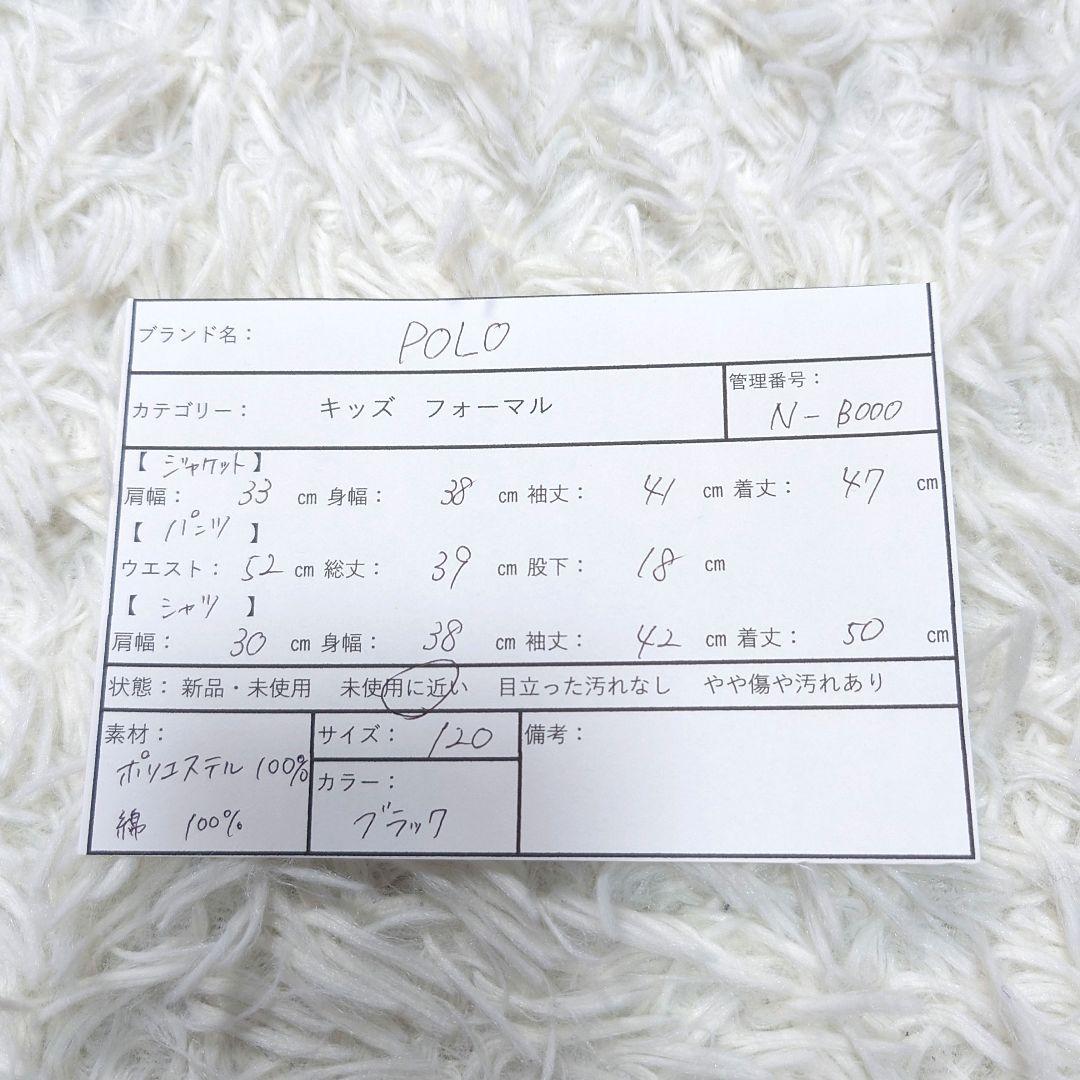 ブランド名： POLO
カテゴリー： キッズ フォーマル
管理番号：
N-B000
【 ジャケット】
肩幅： 33 ㎝ 身幅： 38 ㎝ 袖丈： 41 ㎝ 着丈： 47 ㎝
【 パンツ 】
ウエスト： 52 ㎝ 総丈： 39 ㎝ 股下： 18 ㎝
【 シャツ 】
肩幅： 30 ㎝ 身幅： 38 ㎝ 袖丈： 42 ㎝ 着丈： 50 ㎝
状態： 新品・未使用 未使用に近い 目立った汚れなし やや傷や汚れあり
素材：
ポリエステル 100%
綿 100%
サイズ： 120
カラー：
ブラック
備考：